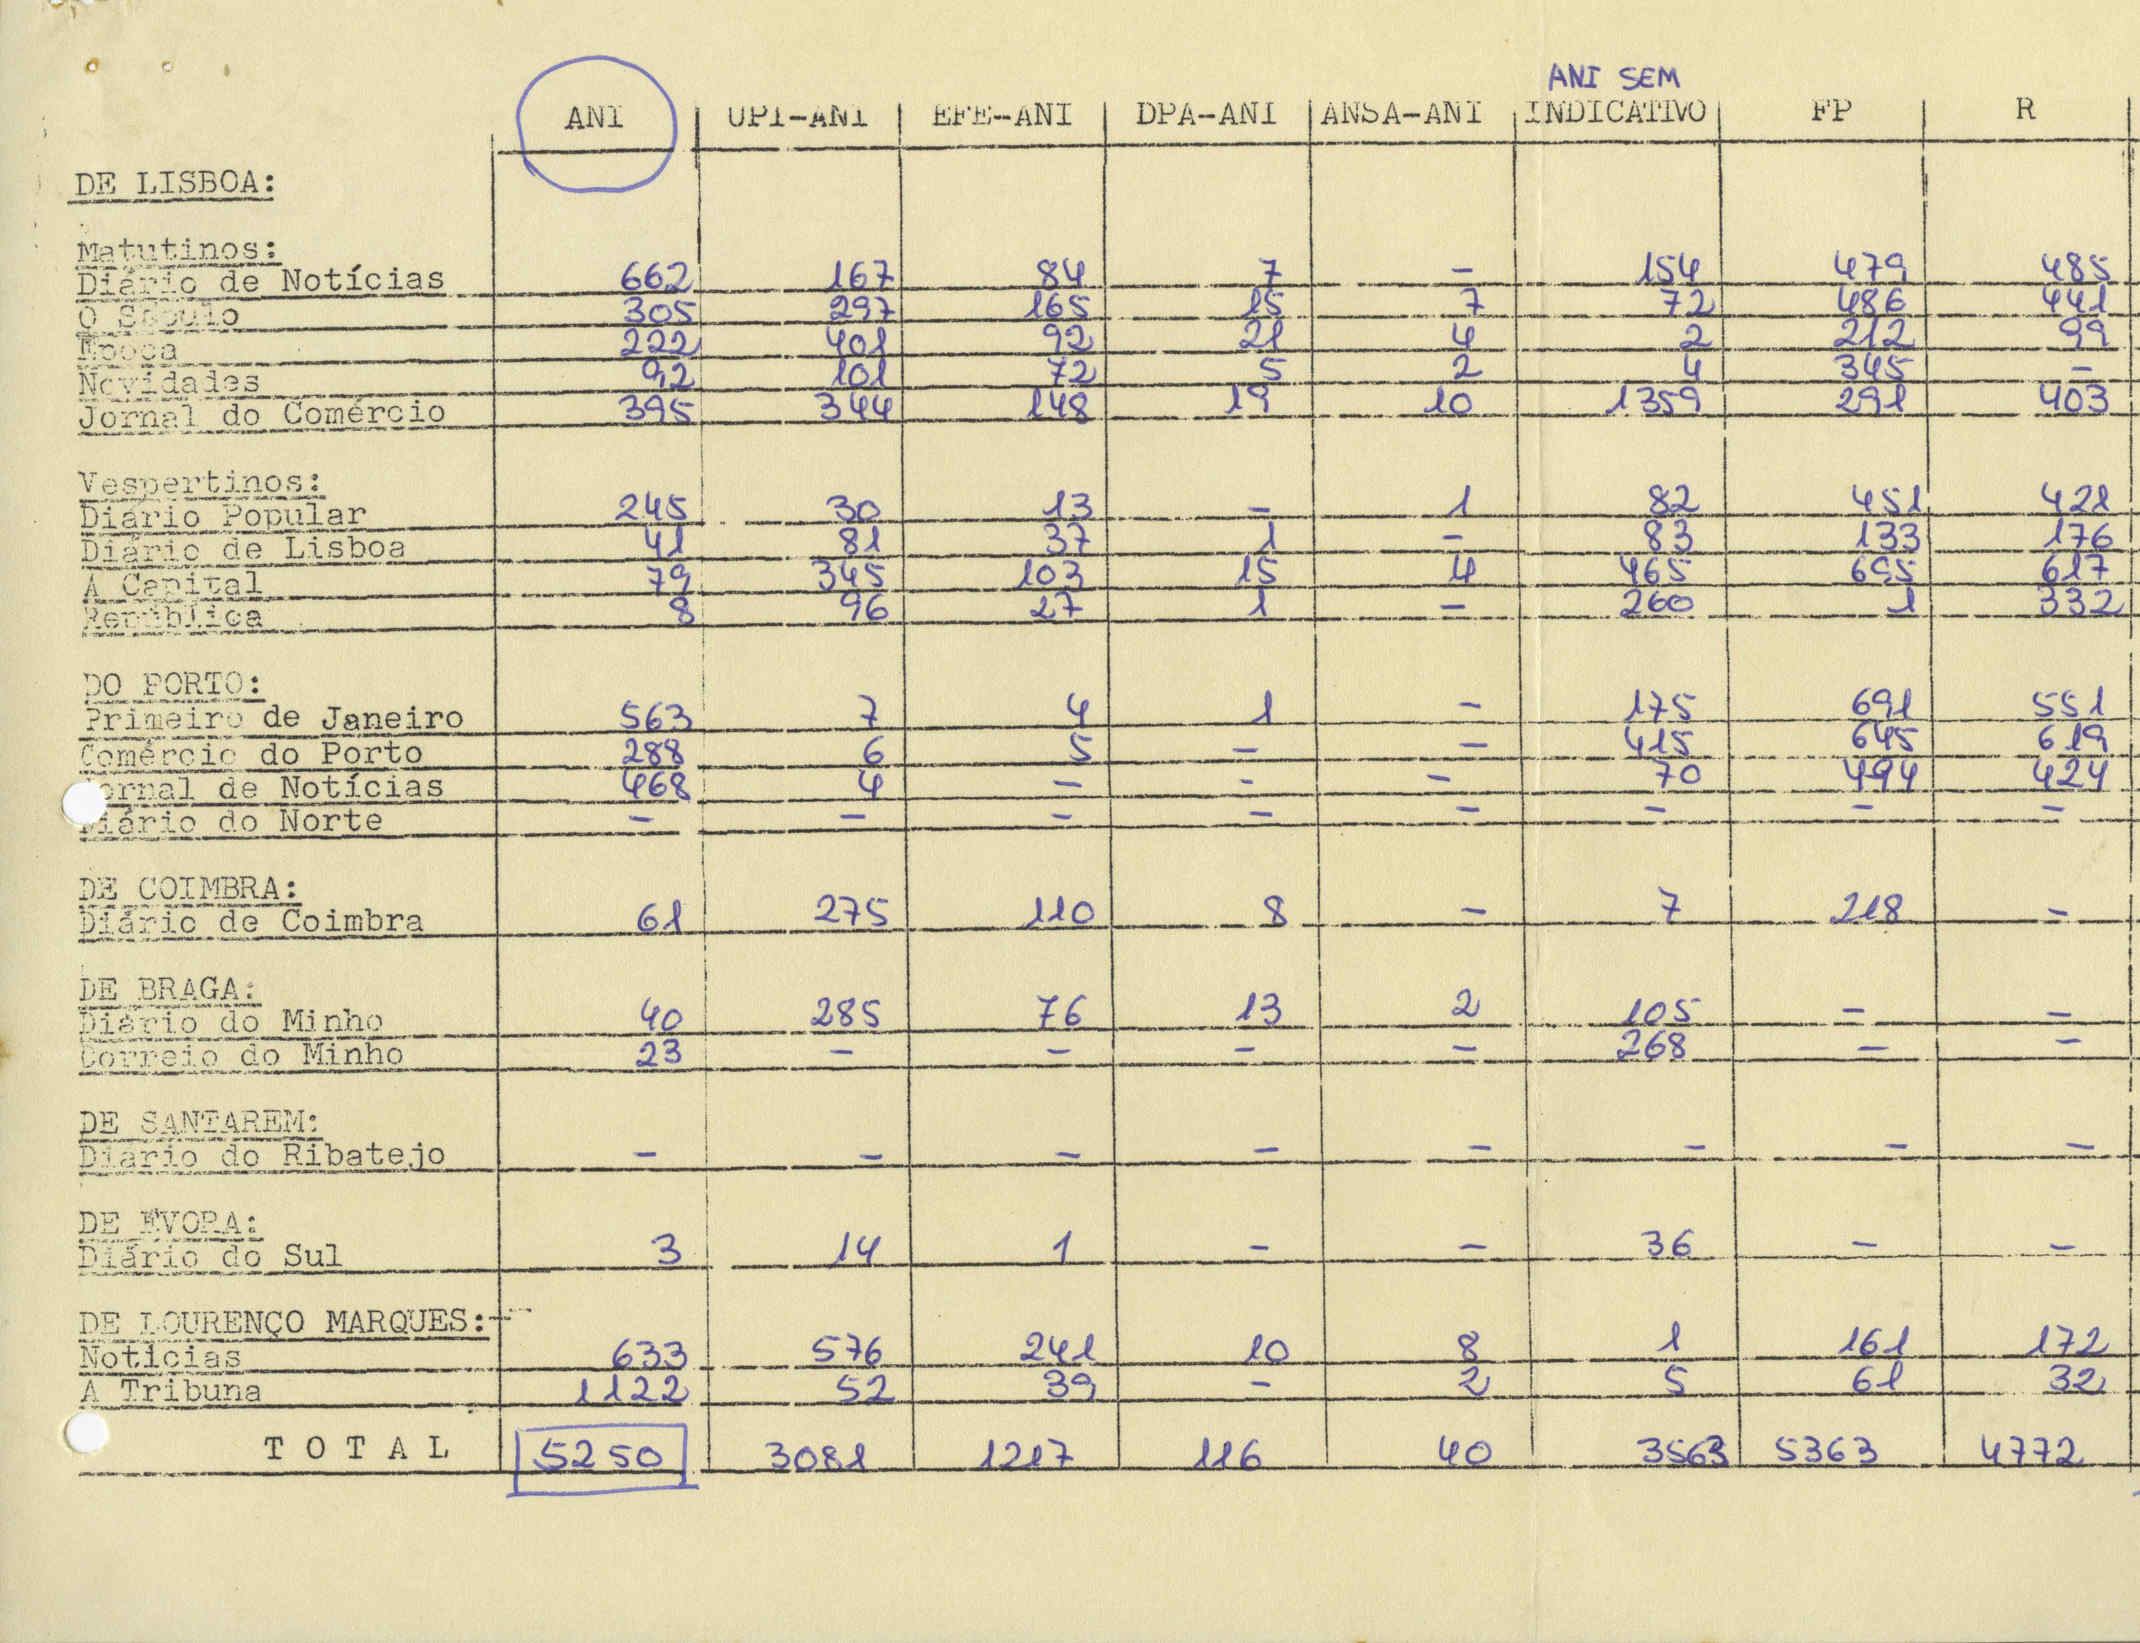 ANI SEM
ANI UPI-ANI EFE-ANI DPA-ANI ANSA-ANI INDICATIVO FP R
DE LISBOA:
Matutinos:
Diário de Notícias 662 167 84 7 - 154 479 485
O Século 305 297 165 15 7 72 486 441
Época 222 401 92 21 4 2 212 99
Novidades 92 101 72 5 2 4 345 -
Jornal do Comércio 395 344 148 19 10 1359 291 403
Vespertinos:
Diário Popular 245 30 13 - 1 82 451 421
Diário de Lisboa 41 81 37 1 - 83 133 176
A Capital 79 345 103 15 4 465 695 617
República 8 96 27 1 - 260 1 332
DO PORTO:
Primeiro de Janeiro 563 7 4 1 - 175 691 551
Comércio do Porto 288 6 5 - - 415 645 619
ornal de Notícias 468 4 - - - 70 494 424
iário do Norte - - - - - - - -
DE COIMBRA:
Diário de Coimbra 61 275 110 8 - 7 218 -
DE BRAGA:
Diário do Minho 40 285 76 13 2 105 - -
Correio do Minho 23 - - - - 268 - -
DE SANTAREM:
Diário do Ribatejo - - - - - - - -
DE ÉVORA:
Diário do Sul 3 14 1 - - 36 - -
DE LOURENÇO MARQUES:
Notícias 633 576 241 10 8 1 161 172
A Tribuna 1122 52 39 - 2 5 61 32
T O T A L 5250 3081 1217 116 40 3563 5363 4772